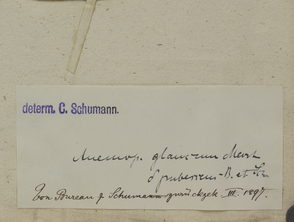 determ. C. Schumann.
Anemop. glaucum Mart
δ puberrus - B et Sch
Von Bureau & Schumann zurückgek III. 1897.